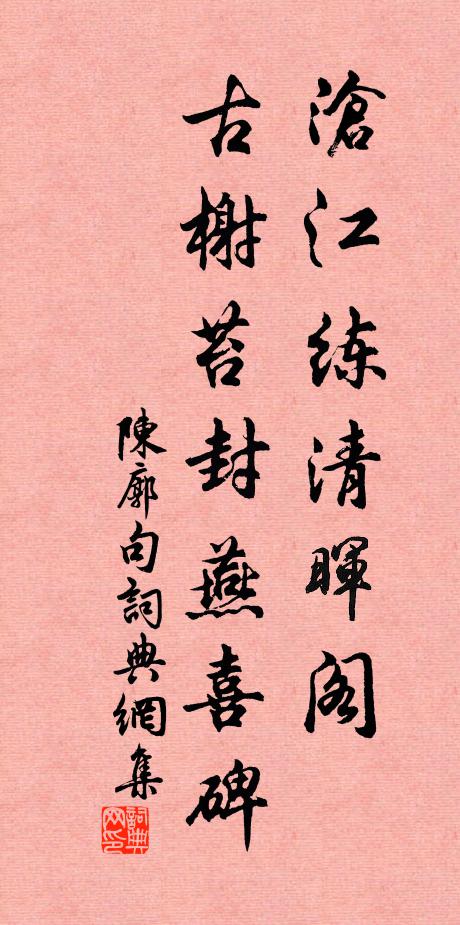 滄江練清暉閣
古榭苔封燕喜碑
陳廓句詞典網集
詞典
网印